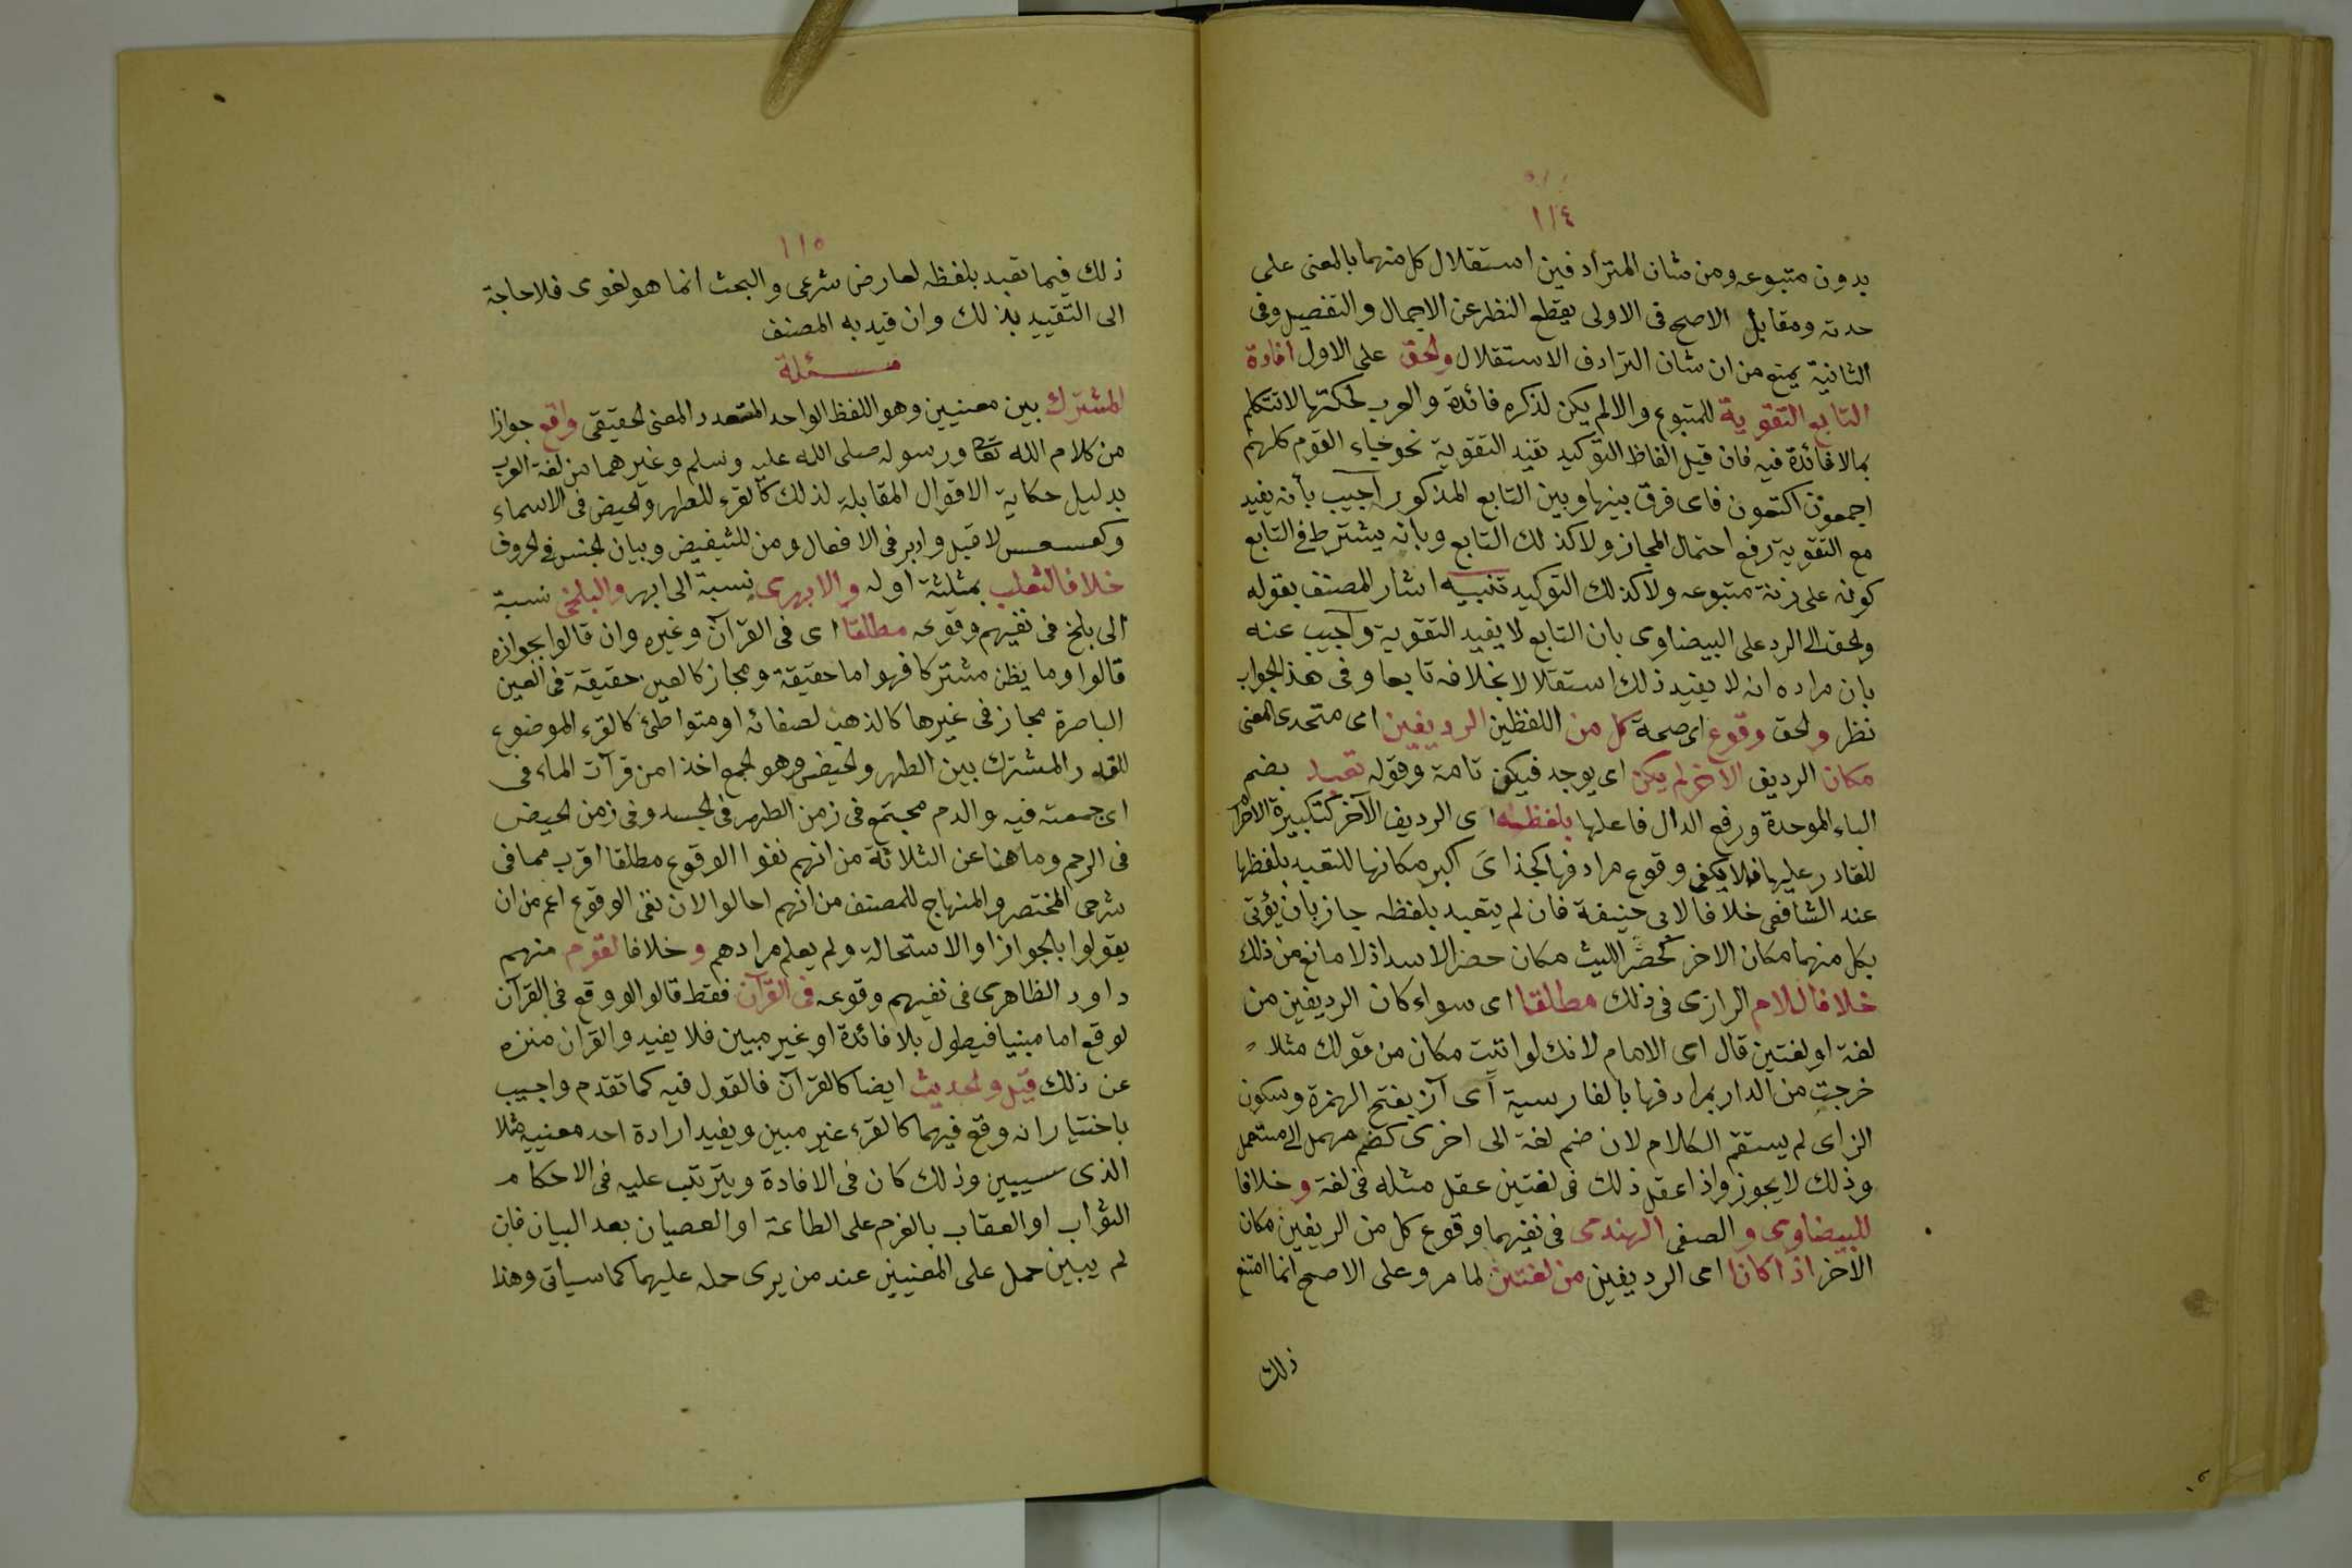 ١١٤
بدون متبوعه ومن شان المترادفين استقلال كل منهما بالمعنى على
حدته ومقابل الاصح فى الاولى يقطع النظر عن الاجمال والتفصيل وفى
الثانية يمنع من ان شان الترادف الاستقلال والحق على الاول افادة
التابع التقوية للمتبوع والا لم يكن لذكره فائدة والعرب لحكمتها لا تتكلم
بما لا فائدة فيه فان قيل الفاظ التوكيد تفيد التقوية نحو جاء القوم كلهم
اجمعون اكتعون فاى فرق بينها وبين التابع المذكور اجيب بأنه يفيد
مع التقوية رفع احتمال المجاز ولا كذلك التابع وبأنه يشترط فى التابع
كونه على زنة متبوعه ولا كذلك التوكيد تنبيه اشار المصنف بقوله
والحق الى الرد على البيضاوى بان التابع لا يفيد التقوية واجيب عنه
بان مراده انه لا يفيد ذلك استقلالا بخلافه تابعا وفى هذا الجواب
نظر والحق وقوع اى صحة كل من اللفظين الرديفين اى متحدى المعنى
مكان الرديف الاخر لم يكن اى يوجد فيكون تامة وقوله تعبد بضم
الباء الموحدة ورفع الدال فاعلها بلفظه اى الرديف الآخر كتكبيرة الاحرام
للقادر عليها فلا يكفى وقوع مرادفها كخذاى اكبر مكانها للتعبد بلفظها
عند الشافعى خلافا لابى حنيفة فان لم يتعبد بلفظه جاز بان يؤتى
بكل منهما مكان الاخر كحضر الليث مكان حضر الاسد اذ لا مانع من ذلك
خلافا للامام الرازى فى ذلك مطلقا اى سواء كان الرديفين من
لغة او لغتين قال اى الامام لانك لو اتيت مكان من قولك مثلا
خرجت من الدار بمرادفها بالفارسية اى از بفتح الهمزة وسكون
الزاى لم يستقم الكلام لان ضم لغة الى اخرى كضم مهمل الى مستعمل
وذلك لا يجوز واذا عقل ذلك فى لغتين عقل مثله فى لغة وخلافا
للبيضاوى والصفى الهندى فى نفيهما وقوع كل من الريفين مكان
الآخر اذا كانا اى الرديفين من لغتين لما مر وعلى الاصح انما امتنع
ذلك
١١٥
ذلك فيما تعبد بلفظه لعارض شرعى والبحث انما هو لغوى فلا حاجة
الى التقييد بذلك وان قيد به المصنف
مسئلة
المشترك بين معنيين وهو اللفظ الواحد المتعدد المعنى الحقيقى واقع جوازا
من كلام الله تعا ورسوله صلى الله عليه وسلم وغيرهما من لغة العرب
بدليل حكاية الاقوال المقابلة لذلك كالقرء للطهر والحيض فى الاسماء
وكعسعس لاقبل وادبر فى الافعال ومن للتبعيض وبيان الجنس فى الحروف
خلافا لثعلب بمثلثة اوله والابهرى نسبة الى ابهر والبلخى نسبة
الى بلخ فى نفيهم وقوعه مطلقا اى فى القرآن وغيره وان قالوا بجوازه
قالوا وما يظن مشتركا فهو اما حقيقة ومجاز كالعين حقيقة فى العين
الباصرة مجاز فى غيرها كالذهب لصفائه او متواطئ كالقرء الموضوع
للقدر المشترك بين الطهر والحيض وهو الجمع اخذا من قرآت الماء فى
اى جمعته فيه والدم مجتمع فى زمن الطهر فى الجسد وفى زمن الحيض
فى الرحم وما هنا عن الثلاثة من انهم نفوا الوقوع مطلقا اقرب مما فى
شرحى المختصر والمنهاج للمصنف من انهم احالوا لان نفى الوقوع اعم من ان
يقولوا بالجواز او الاستحالة ولم يعلم مرادهم وخلافا لقوم منهم
داود الظاهرى فى نفيهم وقوعه فى القرآن فقط قالوا لو وقع فى القرآن
لوقع اما مبينا فيطول بلا فائدة او غير مبين فلا يفيد والقرآن منزه
عن ذلك قيل والحديث ايضا كالقرآن فالقول فيه كما تقدم واجيب
باختيار انه وقع فيهما كالقرء غير مبين ويفيد ارادة احد معنييه مثلا
الذى سيبين وذلك كان فى الافادة ويترتب عليه فى الاحكام
الثواب او العقاب بالعزم على الطاعة او العصيان بعد البيان فان
لم يبين حمل على المعنيين عند من يرى حمله عليهما كما سيأتى وهذا